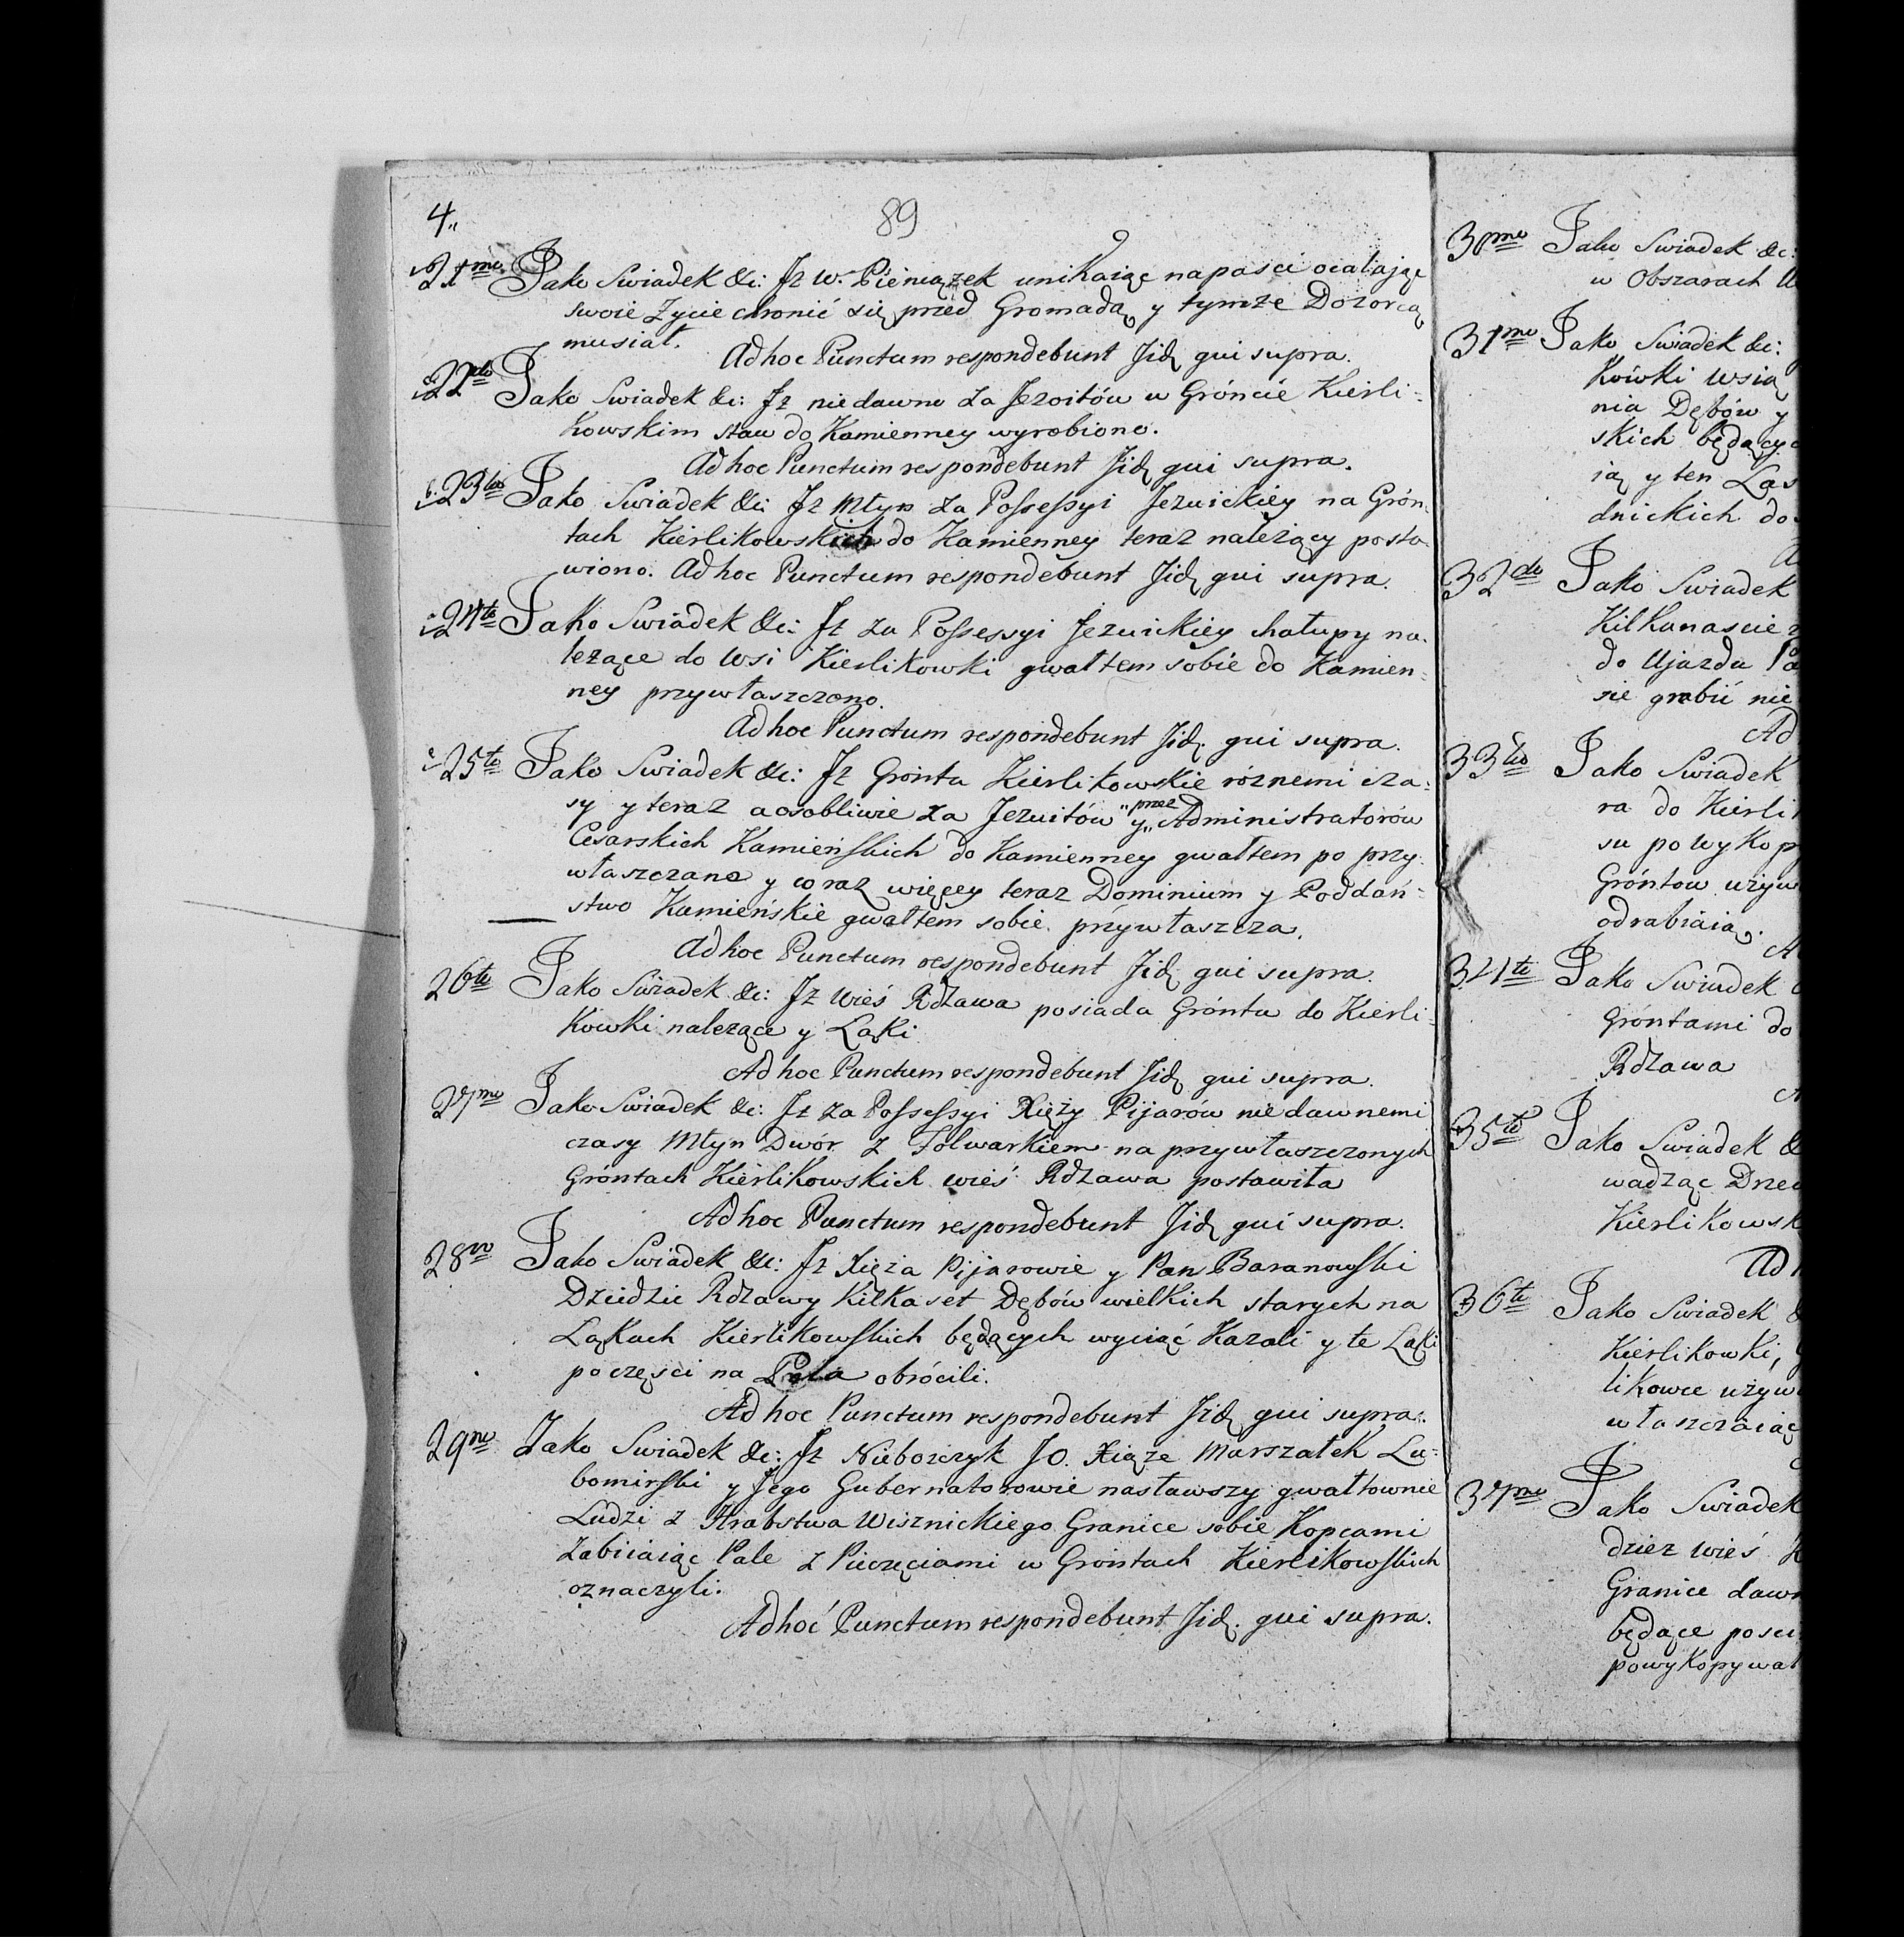 4.
89
21mo Jako Swiadek &c: Jż W. Pieniążek unikaiąc napasci ocalając
swoie Zycie chronić się przed Gromadą y tymże Dozorcą
musiał.
Ad hoc Punctum respondebunt Jid qui supra.
22do Jako Swiadek &c: Jż nie dawno za Jezoitów w Gróncie Kierli=
kowskim staw do Kamienney wyrobiono.
Ad hoc Punctum respondebunt Jid qui supra.
23tio Jako Swiadek &c: Jż Młyn za Possessyi Jezuickiey na Grón=
tach Kierlikowskich do Kamienney teraz należący posta=
wiono. Ad hoc Punctum respondebunt Jid qui supra.
24to Jako Swiadek &c: Jż za Possessyi Jezuickiey chałupy na=
leżące do Wsi Kierlikowki gwałtem sobie do Kamien=
ney przywłaszczono.
Ad hoc Punctum respondebunt Jid qui supra.
25to Jako Swiadek &c: Jż Gronta Kierlikowskie róznemi cza=
sy y teraz a osobliwie za Jezuitów y „przez„ Administratorów
Cesarskich Kamieńskich do Kamienney gwałtem po przy=
właszczano y coraz więcey teraz Dominium y Poddań=
stwo Kamieńskie gwałtem sobie przywłaszcza.
Ad hoc Punctum respondebunt Jid qui supra.
26to Jako Swiadek &c: Jż Wieś Rdzawa posiada Grónta do Kierli=
kowki nalezące y Ląki
Ad hoc Punctum respondebunt Jid qui supra.
27mo Jako Swiadek &c: Jż za Possessyi Xięży Pijarów nie dawnemi
czasy Młyn Dwór z Folwarkiem na przywłaszczonych
Gróntach Kierlikowskich wieś Rdzawa postawiła
Ad hoc Punctum respondebunt Jid qui supra.
28vo Jako Swiadek &c: Jż Xięża Pijarowie y Pan Baranowski
Dziedzic Rdzawy Kilkaset Dębów wielkich starych na
Ląkach Kierlikowskich będących wyciąć Kazali y te Ląki
po częsci na Pola obrócili.
Ad hoc Punctum respondebunt Jid qui supra.
29no Jako Swiadek &c: Jż Nieboszczyk JO. Xiąże Marszałek Lu=
bomirski y Jego Gubernatorowie nasławszy gwałtownie
Ludzi z Hrabstwa Wisznickiego Granice sobie Kopcami
Zabiiaiąc Pale z Pieczęciami w Grontach Kierlikowskich
oznaczyli.
Ad hoc Punctum respondebunt Jid. qui supra.
30mo Jako Swiadek &c:
w Obszarach
31mo Jako Swiadek &c:
Kowki Wsią
nia Dębów y
skich będący
ią y ten Las
dnickich do
32do Jako Swiadek
Kilkanascie
do Ujazdu
sie grabić nie
Ad
33tio Jako Swiadek
ra do Kierli
su powykop
Gróntow używ
odrabiaią.
34to Jako Swiadek
Gróntami do
Rdzawa
35to Jako Swiadek &
wadząc Drze
Kierlikowsk
Ad
36to Jako Swiadek
Kierlikowki,
likowce używ
właszczaiąc
37mo Jako Swiadek
dzież wieś
Granice daw
będące
powykopywał